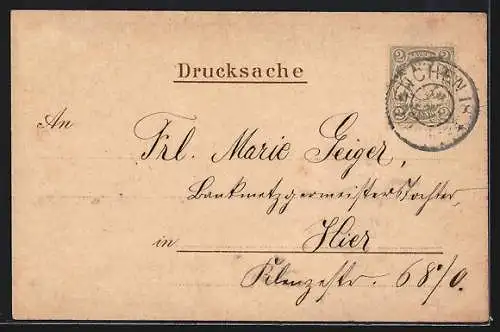 Drucksache
2 2
MÜNCHEN 18
2 2
An
Frl. Marie Geiger,
Bankmetzgermeisterstochter,
in Hier
Klenzestr. 68/0.